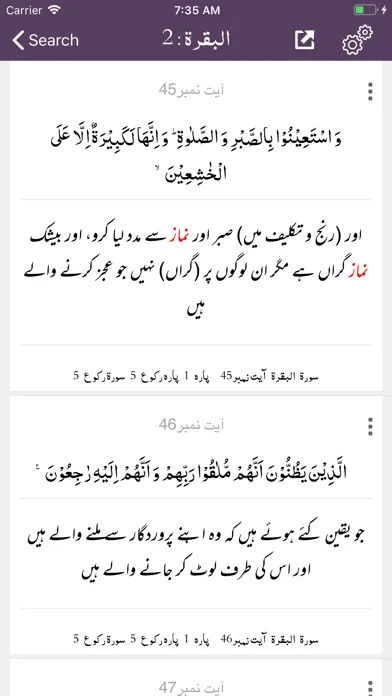 Carrier 7:35 AM
Search البقرة : 2
آیت نمبر45
وَاسْتَعِيْنُوْا بِالصَّبْرِ وَالصَّلٰوةِ ؕ وَاِنَّهَا لَكَبِيْرَةٌ اِلَّا عَلَى
الْخٰشِعِيْنَ ۙ
اور (رنج و تکلیف میں) صبر اور نماز سے مدد لیا کرو، اور بیشک
نماز گراں ہے مگر ان لوگوں پر (گراں) نہیں جو عجز کرنے والے
ہیں
سورۃ البقرۃ آیت نمبر45 پارہ 1 پارہ رکوع 5 سورۃ رکوع 5
آیت نمبر46
الَّذِيْنَ يَظُنُّوْنَ اَنَّهُمْ مُّلٰقُوْا رَبِّهِمْ وَاَنَّهُمْ اِلَيْهِ رٰجِعُوْنَ ۠
جو یقین کئے ہوئے ہیں کہ وہ اپنے پروردگار سے ملنے والے ہیں
اور اس کی طرف لوٹ کر جانے والے ہیں
سورۃ البقرۃ آیت نمبر46 پارہ 1 پارہ رکوع 5 سورۃ رکوع 5
آیت نمبر47